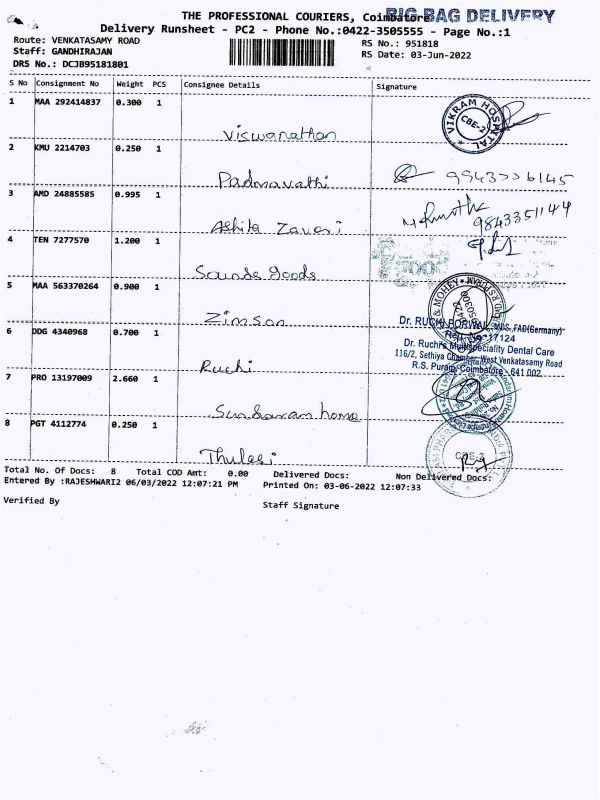 THE PROFESSIONAL COURIERS, Coimbatore
BIG BAG DELIVERY
Delivery Runsheet - PC2 - Phone No.:0422-3505555 - Page No.:1
Route: VENKATASAMY ROAD
RS No.: 951818
Staff: GANDHIRAJAN
RS Date: 03-Jun-2022
DRS No.: DCJB95181801
S No Consignment No Weight PCS Consignee Details Signature
1 MAA 292414837 0.300 1
Viswanathan
VIKRAM HOSPITAL
CBE-2
2 KMU 2214703 0.250 1
Padmavathi
3 AMD 24885585 0.995 1
Ashita Zaveri
9843351144
4 TEN 7277570 1.200 1
Sounds goods
5 MAA 563370264 0.900 1
Zimson
Dr. RUCHI PORWAL MDS, FAD(Germany)
Reg. No-17124
Dr. Ruchi's Multispeciality Dental Care
116/2, Sethiya Chamber, West Venkatasamy Road
R.S. Puram, Coimbatore - 641 002
6 DDG 4340968 0.700 1
Ruchi
7 PRO 13197009 2.660 1
Sundaram home
8 PGT 4112774 0.250 1
Thulasi
CBE-2
Total No. Of Docs: 8 Total COD Amt: 0.00 Delivered Docs: Non Delivered Docs:
Entered By :RAJESHWARI2 06/03/2022 12:07:21 PM Printed On: 03-06-2022 12:07:33
Verified By
Staff Signature